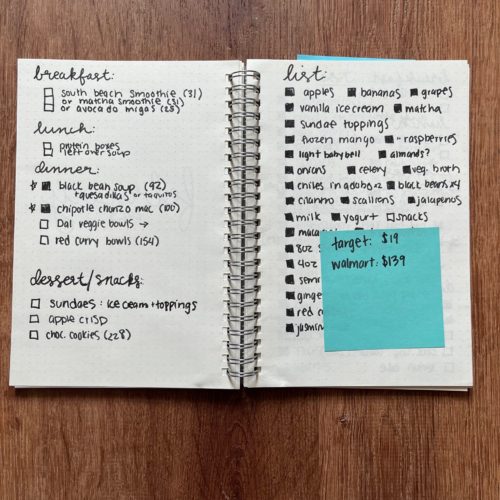 breakfast:
south beach smoothie (31)
or matcha smoothie (31)
or avocado migas (28)
lunch:
protein boxes
left over soup
dinner:
black bean soup (92)
+quesadillas or taquitos
chipotle chorizo mac (100)
Dal veggie bowls →
red curry bowls (154)
dessert/snacks:
sundaes: ice cream + toppings
apple crisp
choc. cookies (228)
list:
apples bananas grapes
vanilla ice cream matcha
sundae toppings
frozen mango " raspberries
light babybell almonds?
onions celery veg. broth
chiles in adobo x2 black beans x4
cilantro scallions jalapenos
milk yogurt snacks
8oz
4oz
ginge
red c
jasmin
target: $19
walmart: $139